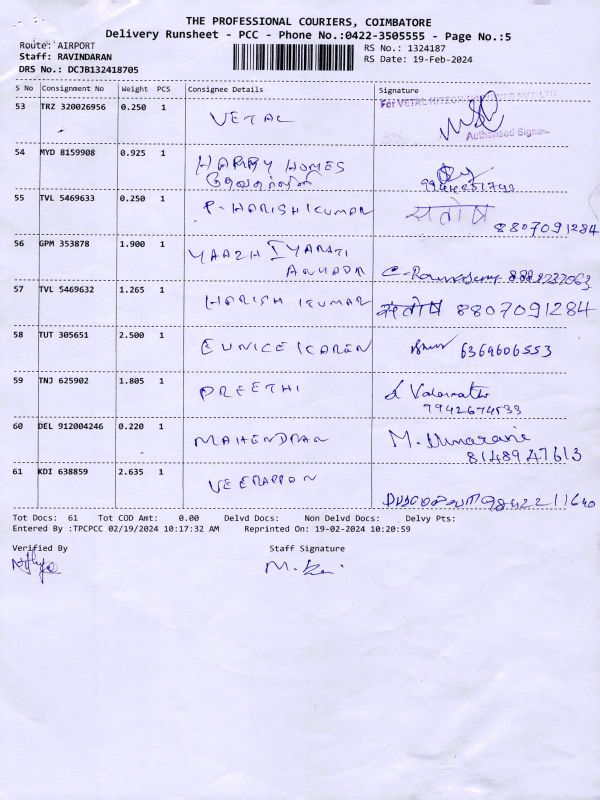 THE PROFESSIONAL COURIERS, COIMBATORE
Delivery Runsheet - PCC - Phone No.:0422-3505555 - Page No.:5
Route: AIRPORT
RS No.: 1324187
Staff: RAVINDARAN
RS Date: 19-Feb-2024
DRS No.: DCJB132418705
S No Consignment No Weight PCS Consignee Details Signature
For VETAL
53 TRZ 320026956 0.250 1 VETAL
Authorised
54 MYD 8159908 0.925 1 HARRY HOMES
55 TVL 5469633 0.250 1 P. HARISH KUMAR संतोष
8807091284
56 GPM 353878 1.900 1 YAAZH IYARATI
57 TVL 5469632 1.265 1 HARISH KUMAR संतोष 8807091284
58 TUT 305651 2.500 1 EUNICE KAREN 6369606553
59 TNJ 625902 1.805 1 PREETHI
9942674533
60 DEL 912004246 0.220 1 MAHENDRAN M. Umarani
8148947613
61 KDI 638859 2.635 1 VEERAPPON
9842211640
Tot Docs: 61 Tot COD Amt: 0.00 Delvd Docs: Non Delvd Docs: Delvy Pts:
Entered By :TPCPCC 02/19/2024 10:17:32 AM Reprinted On: 19-02-2024 10:20:59
Verified By Staff Signature